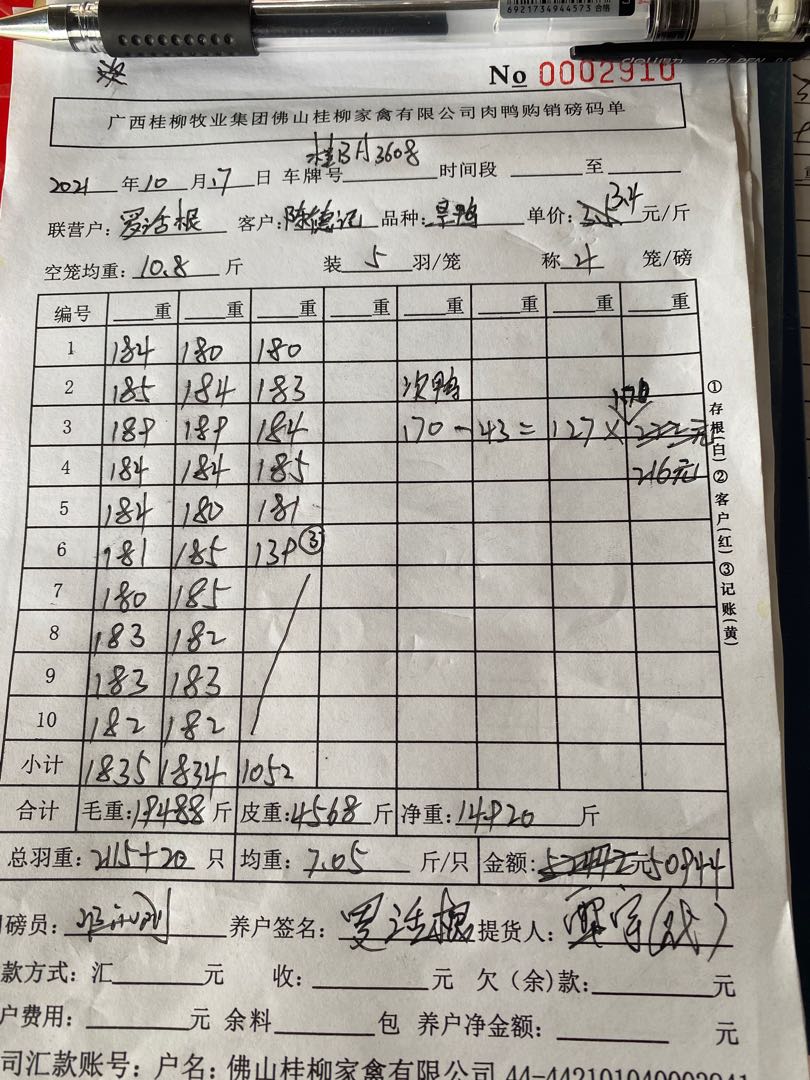 6921734944573 合格
GEL PEN 0.5
No 0002910
广西桂柳牧业集团佛山桂柳家禽有限公司肉鸭购销磅码单
桂BA3608
2021 年 10 月 17 日 车牌号 时间段 至
联营户: 客户: 陈德记 品种: 单价: 3.5 3.4 元/斤
空笼均重: 10.8 斤 装 5 羽/笼 称 4 笼/磅
编号 重 重 重 重 重 重 重 重
1 184 180 180
2 185 184 183 次鸭
170
3 189 189 184 170 - 43 = 127 ×
4 184 184 185 216元
5 184 180 181
6 181 185 139 ③
7 180 185
8 183 182
9 183 183
10 182 182
小计 1835 1834 1052
合计 毛重: 19488 斤 皮重: 4568 斤 净重: 14920 斤
总羽重: 2115+20 只 均重: 7.05 斤/只 金额: 元 50944
磅员: 养户签名: 提货人:
款方式: 汇 元 收: 元 欠(余)款: 元
户费用: 元 余料 包 养户净金额: 元
司汇款账号: 户名: 佛山桂柳家禽有限公司
①存根(白)②客户(红)③记账(黄)